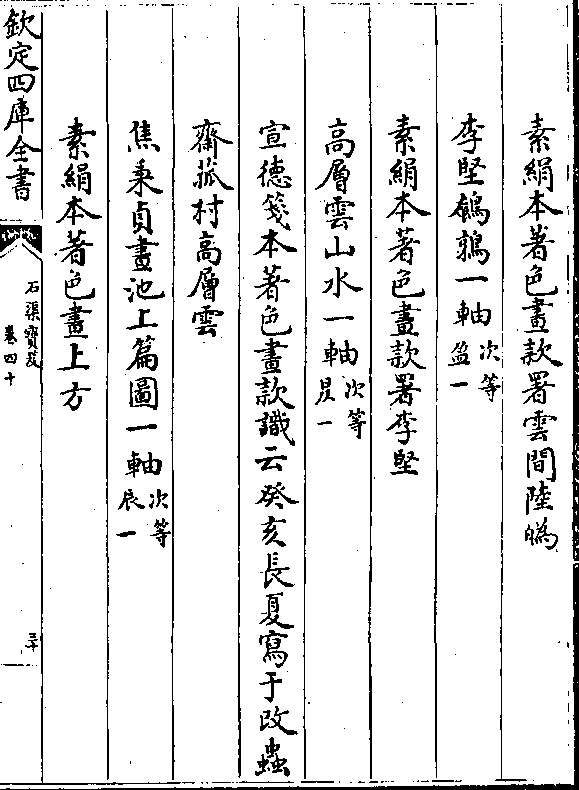 素絹本著色畫款署雲間陸㬙
李堅鵪鶉一軸次等盈一
素絹本著色畫款署李堅
高層雲山水一軸次等昃一
宣德箋本著色畫款識云癸亥長夏寫于改蟲
齋菰村高層雲
焦秉貞畫池上篇圖一軸次等辰一
素絹本著色畫上方
欽定四庫全書
石渠寶笈
卷四十
三十